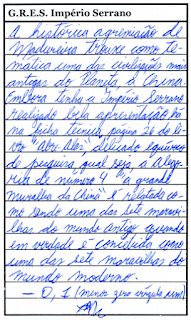 G.R.E.S. Império Serrano
A histórica agremiação de
Madureira trouxe como te-
mática uma das civilizações mais
antigas do Planeta, a China.
Embora tenha a Império Serrano
realizado bela apresentação
na ficha técnica, página 26 do li-
vro "Abre-Alas" delicado equívoco
de pesquisa qual seja, a Alego-
ria de número 4 "a grande
muralha da China" é relatada co-
mo sendo uma das sete maravi-
lhas do mundo antigo quando
em verdade é considerada como
uma das sete maravilhas do
mundo moderno.
- 0,1 (menos zero vírgula um)